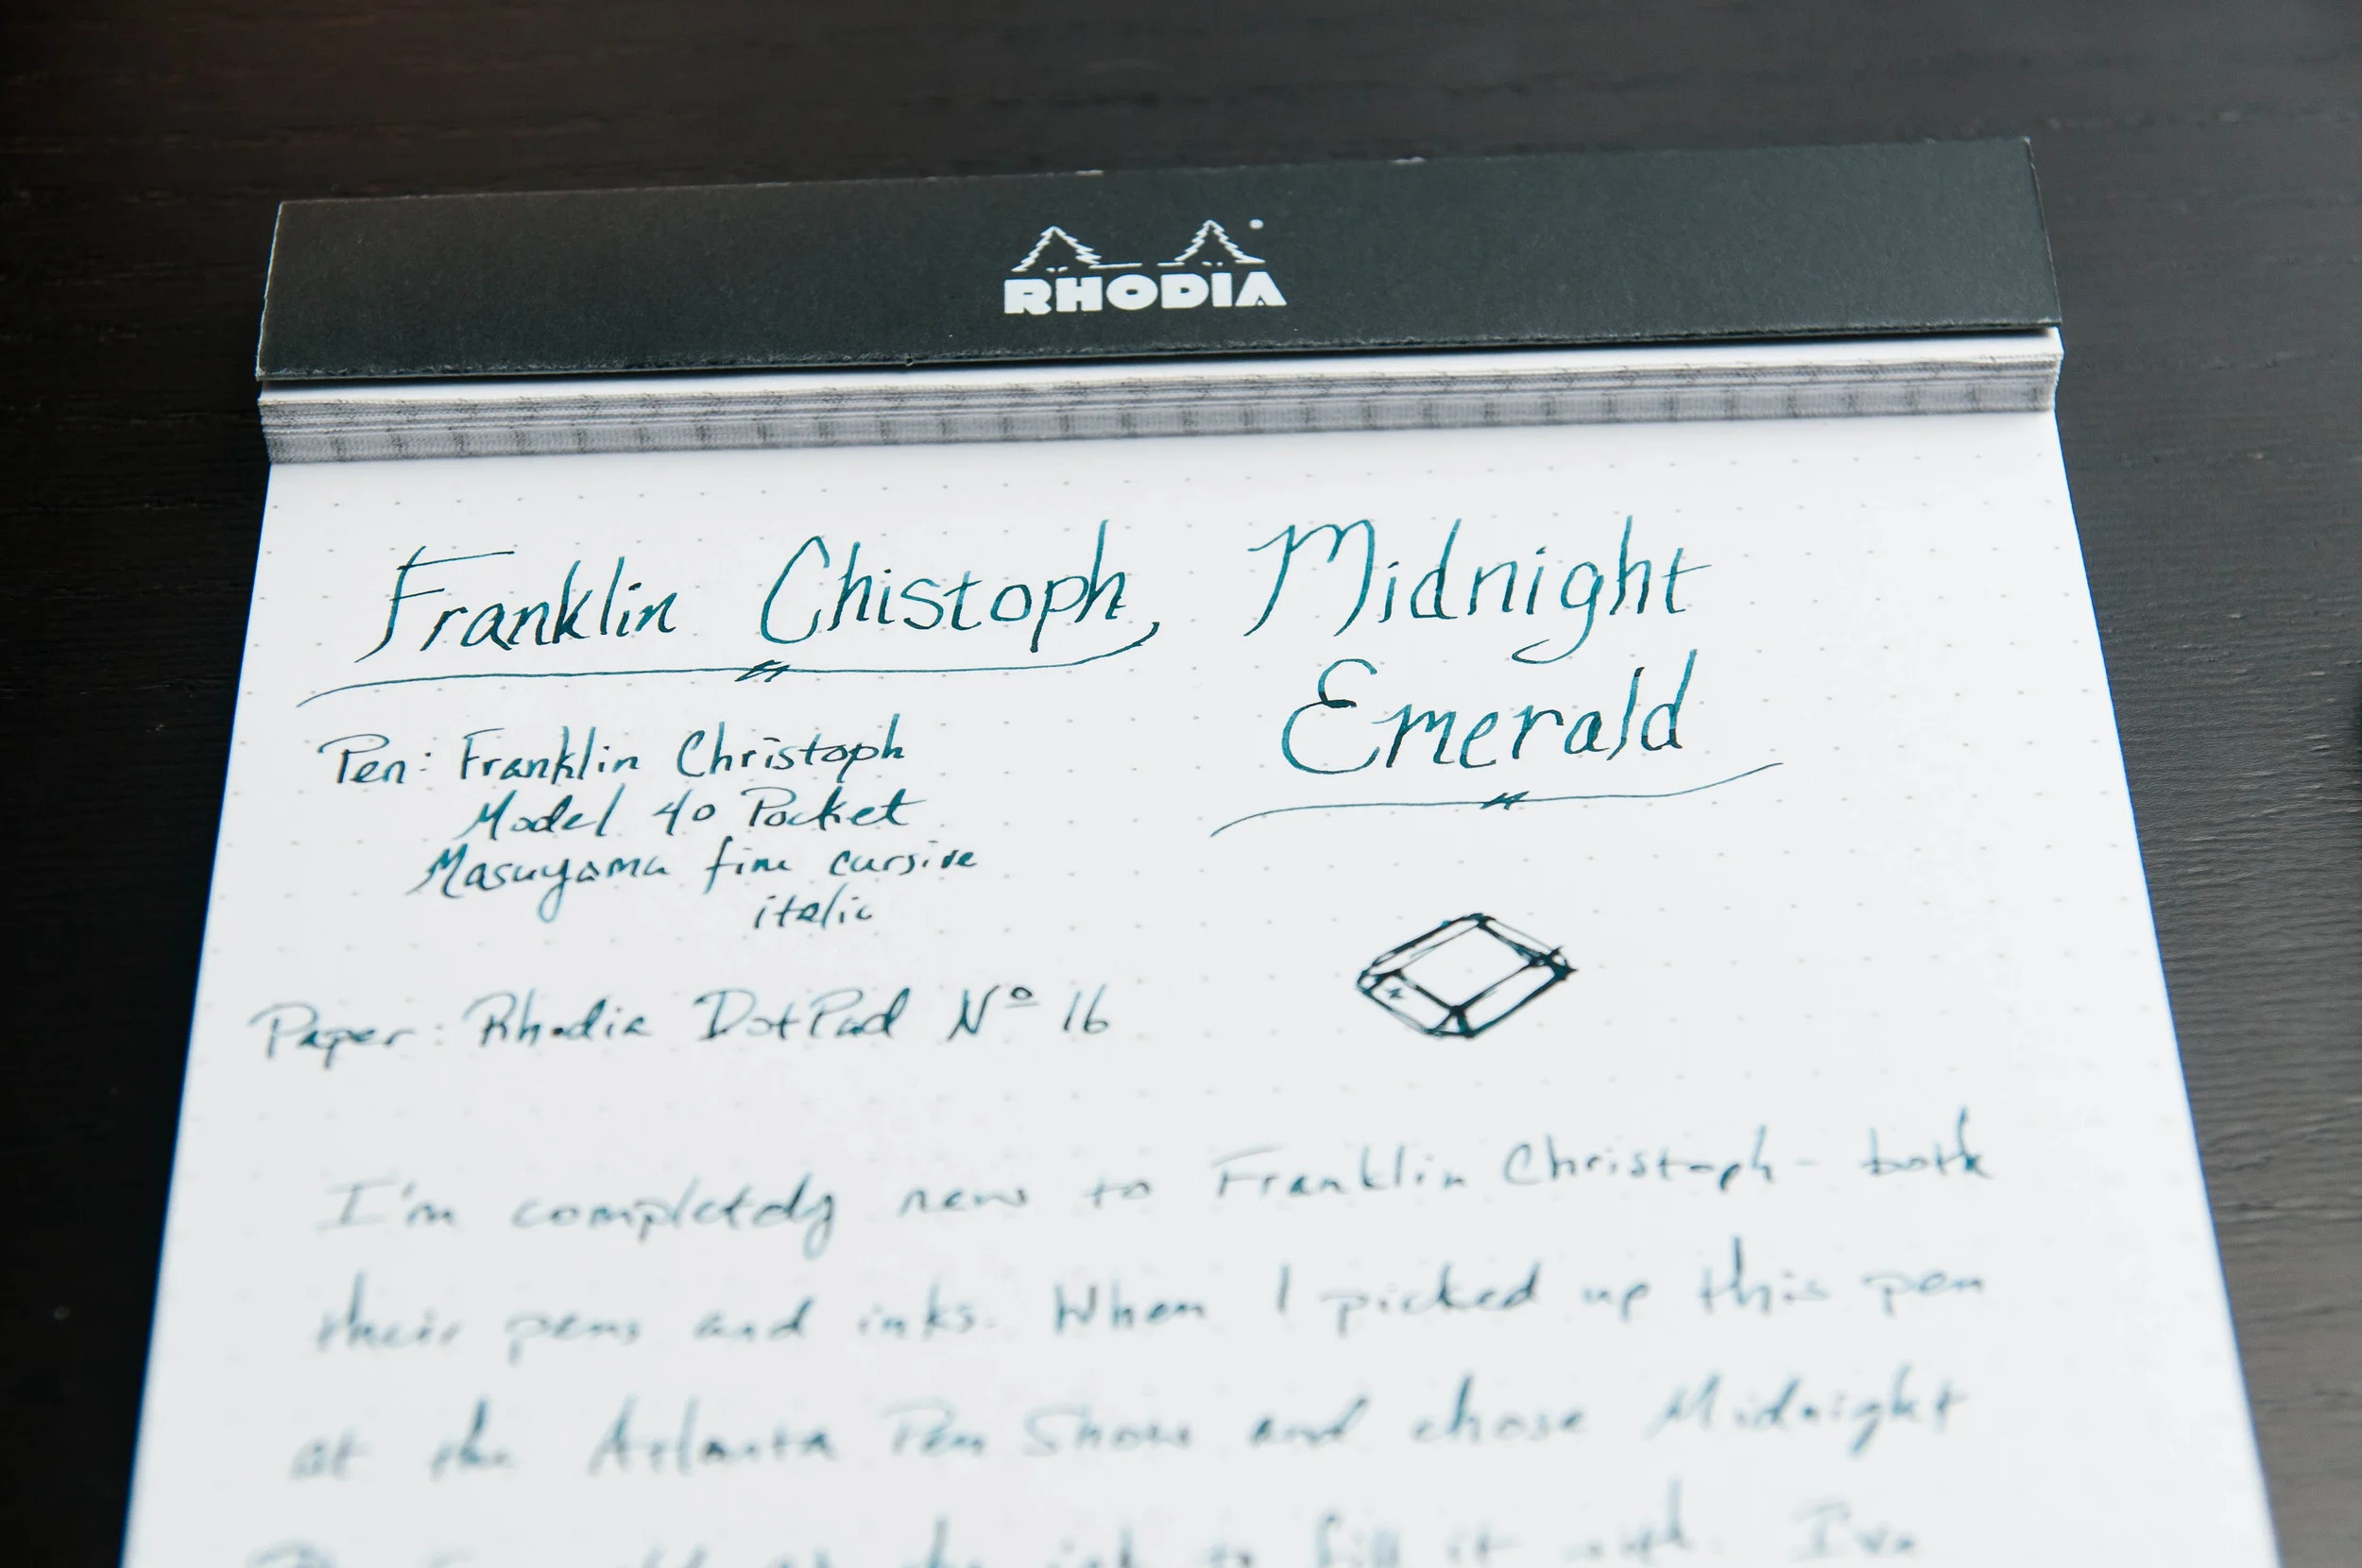 RHODIA
Franklin Chistoph
Midnight
Emerald
Pen: Franklin Christoph
Model 40 Pocket
Masuyama fine cursive
italic
Paper: Rhodia DotPad Nº 16
I'm completely new to Franklin Christoph - both
their pens and inks. When I picked up this pen
at the Atlanta Pen Show and chose Midnight
Emerald as the ink to fill it with. I've